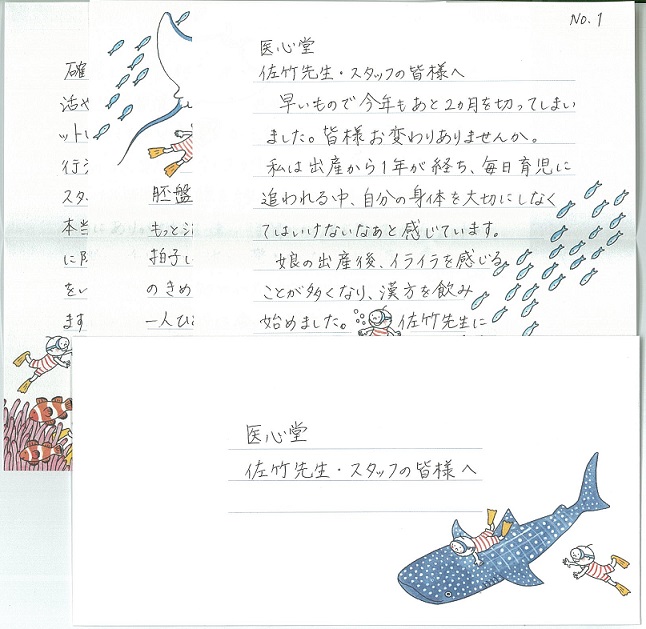 No.1
医心堂
佐竹先生・スタッフの皆様へ
早いもので今年もあと2ヵ月を切ってしまい
ました。皆様お変わりありませんか。
私は出産から1年が経ち、毎日育児に
追われる中、自分の身体を大切にしなく
てはいけないなぁと感じています。
娘の出産後、イライラを感じる
ことが多くなり、漢方を飲み
始めました。佐竹先生に
胚盤
もっと
拍子
のきめ
一人ひ
確
活や
ット
行
スタ
本当
に
を
ます
医心堂
佐竹先生・スタッフの皆様へ